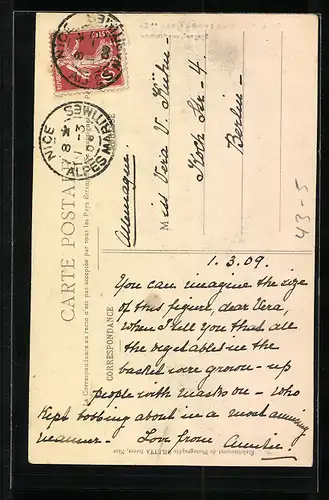 CARTE POSTALE
La Correspondance au recto n'est pas acceptée par tous les Pays
CORRESPONDANCE
NICE
ALPES MARITIMES
NICE
8 1-3
ALPES MARITIMES
Miss Vera V.
Koch Str - 4
Berlin -
Allemagne.
43-5
1.3.09.
You can imagine the size
of this figure, dear Vera,
when I tell you that all
the vegetables in the
basket were grown-up
people with masks on - who
kept bobbing about in a most amusing
manner - Love from
Etablissement de Photographie GILETTA frères, Nice